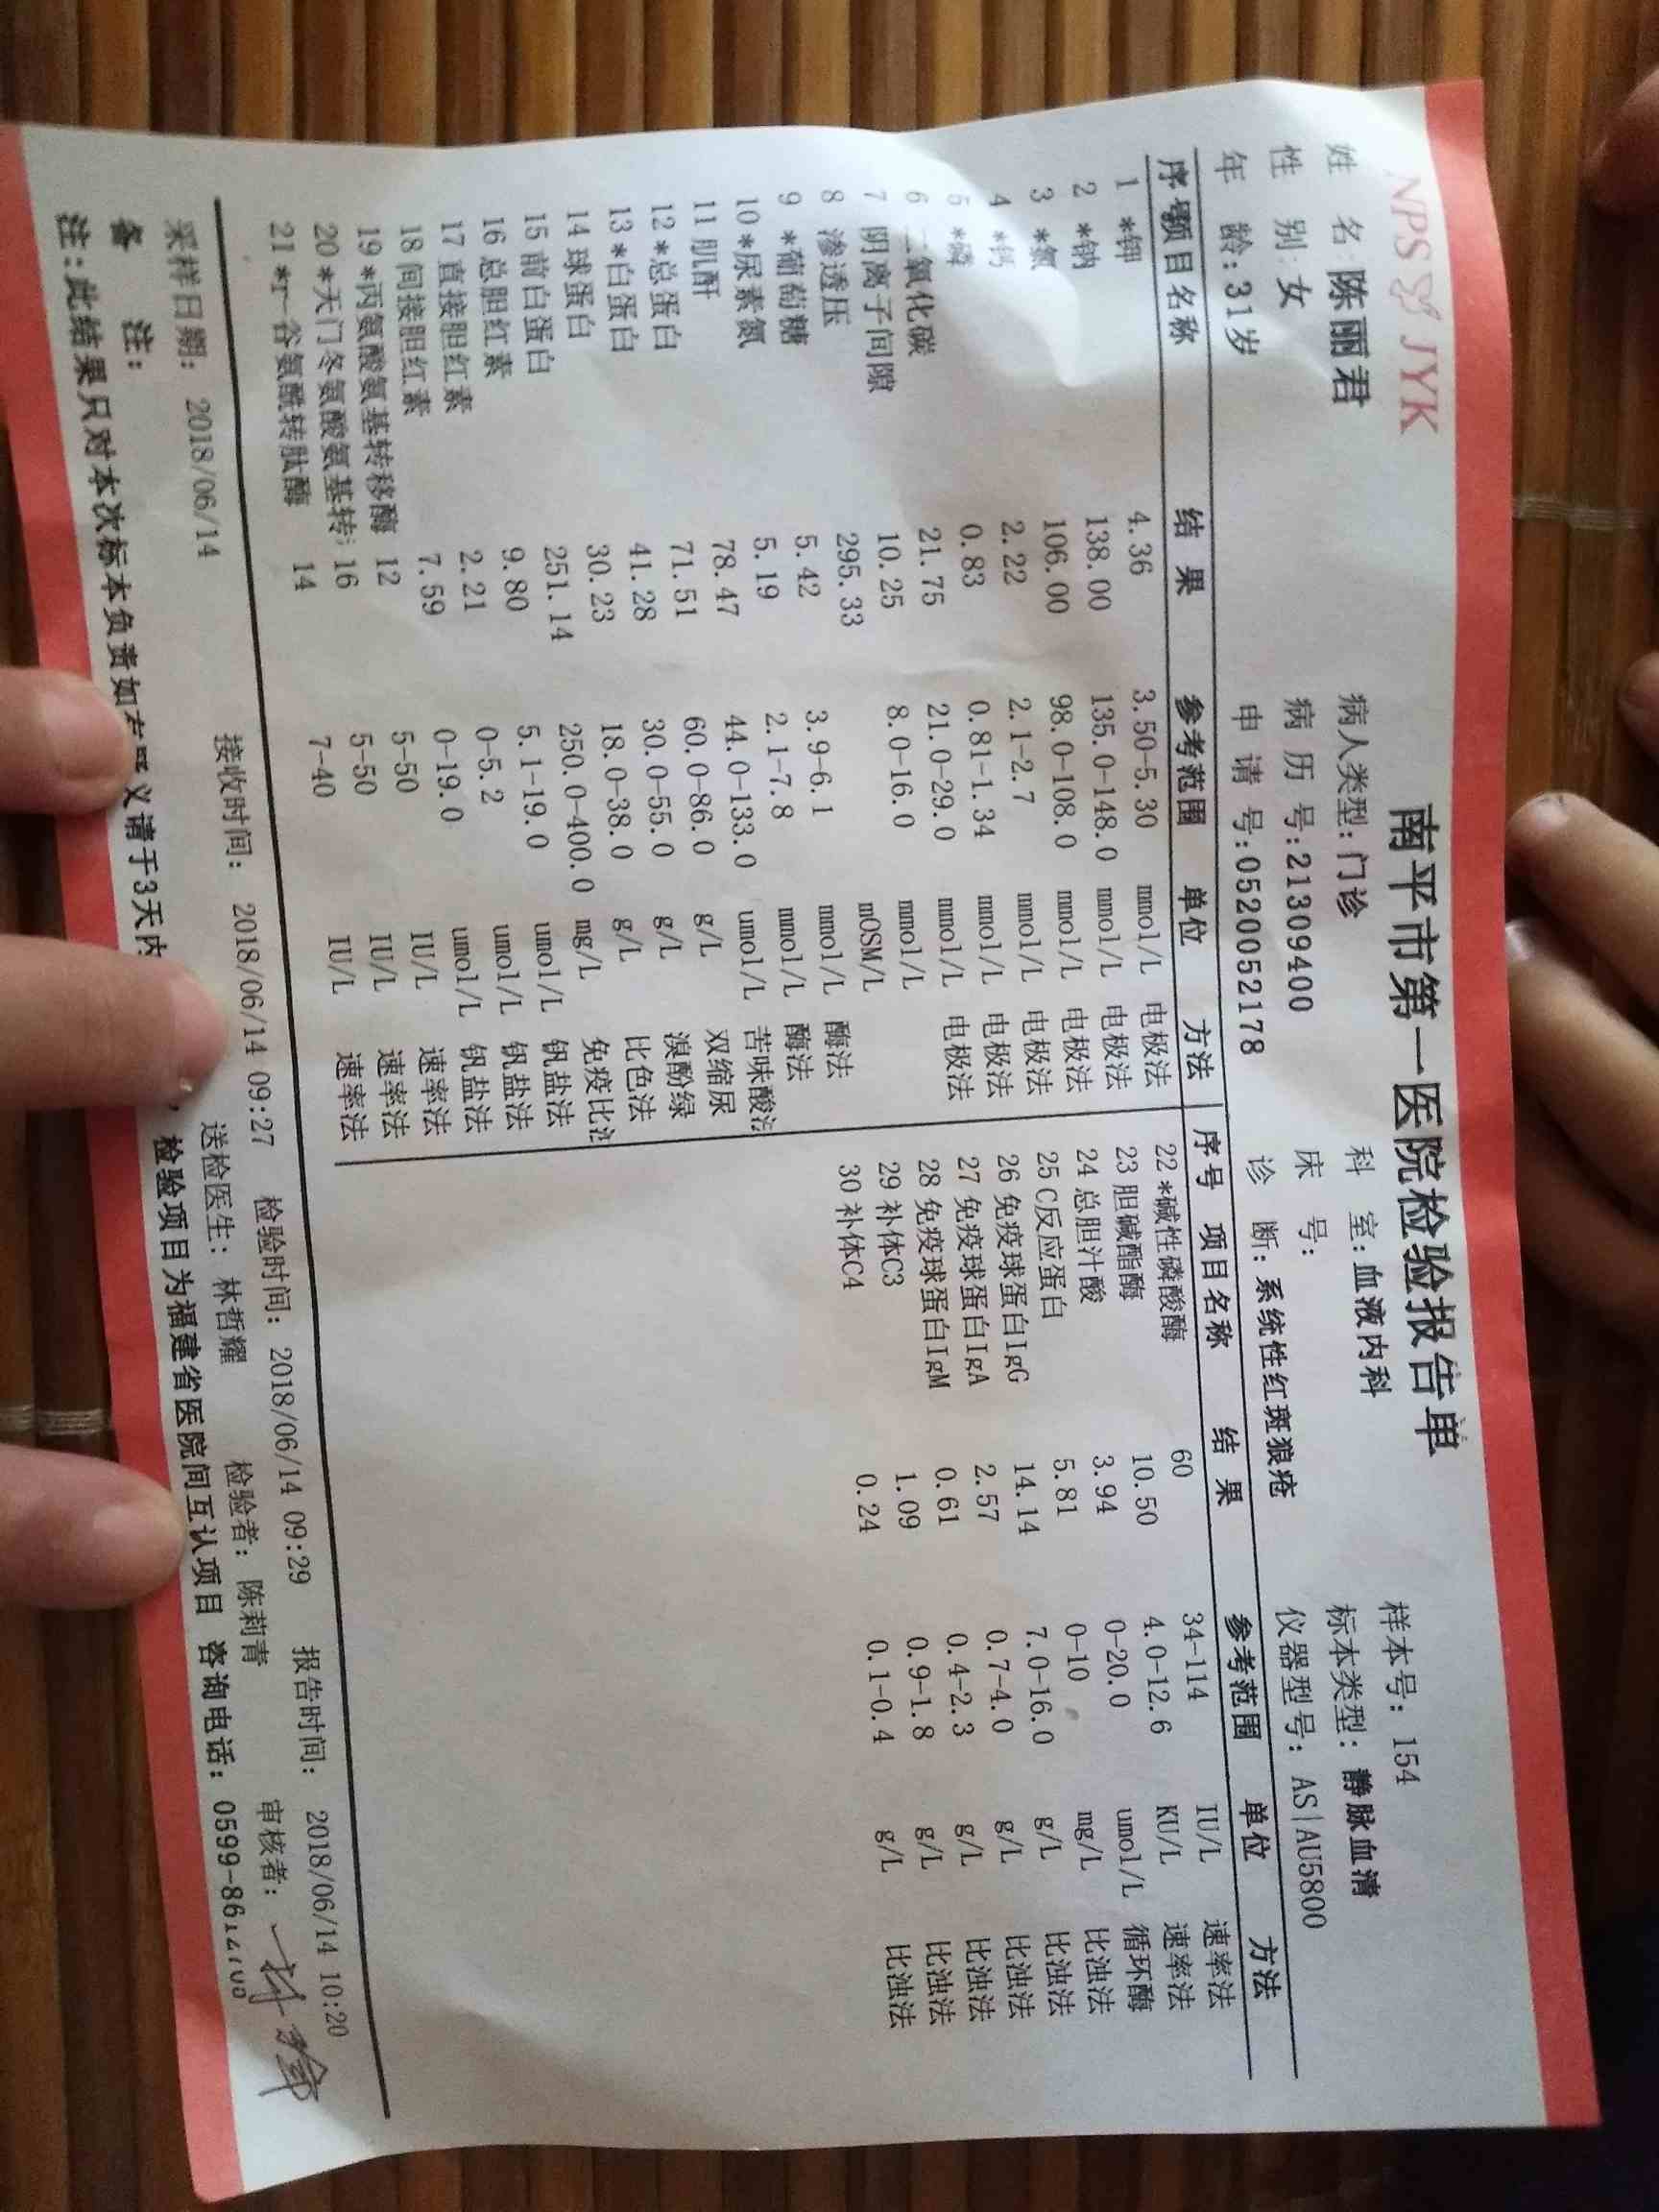 NPS JYK
南平市第一医院检验报告单
样本号: 154
姓 名:陈丽君 病人类型:门诊 科 室:血液内科 标本类型: 静脉血清
性 别:女 病 历 号:21309400 床 号: 仪器型号: AS|AU5800
年 龄:31岁 申 请 号:0520052178 诊 断:系统性红斑狼疮
序号 项目名称 结 果 参考范围 单位 方法 序号 项目名称 结 果 参考范围 单位 方法
1 *钾 4.36 3.50-5.30 mmol/L 电极法 22 *碱性磷酸酶 60 34-114 IU/L 速率法
2 *钠 138.00 135.0-148.0 mmol/L 电极法 23 胆碱酯酶 10.50 4.0-12.6 KU/L 速率法
3 *氯 106.00 98.0-108.0 mmol/L 电极法 24 总胆汁酸 3.94 0-20.0 umol/L 循环酶
4 *钙 2.22 2.1-2.7 mmol/L 电极法 25 C反应蛋白 5.81 0-10 mg/L 比浊法
5 *磷 0.83 0.81-1.34 mmol/L 电极法 26 免疫球蛋白IgG 14.14 7.0-16.0 g/L 比浊法
6 二氧化碳 21.75 21.0-29.0 mmol/L 电极法 27 免疫球蛋白IgA 2.57 0.7-4.0 g/L 比浊法
7 阴离子间隙 10.25 8.0-16.0 mmol/L 28 免疫球蛋白IgM 0.61 0.4-2.3 g/L 比浊法
8 渗透压 295.33 mOSM/L 29 补体C3 1.09 0.9-1.8 g/L 比浊法
9 *葡萄糖 5.42 3.9-6.1 mmol/L 酶法 30 补体C4 0.24 0.1-0.4 g/L 比浊法
10 *尿素氮 5.19 2.1-7.8 mmol/L 酶法
11 肌酐 78.47 44.0-133.0 umol/L 苦味酸法
12 *总蛋白 71.51 60.0-86.0 g/L 双缩尿
13 *白蛋白 41.28 30.0-55.0 g/L 溴酚绿
14 球蛋白 30.23 18.0-38.0 g/L 比色法
15 前白蛋白 251.14 250.0-400.0 mg/L 免疫比浊
16 总胆红素 9.80 5.1-19.0 umol/L 钒盐法
17 直接胆红素 2.21 0-5.2 umol/L 钒盐法
18 间接胆红素 7.59 0-19.0 umol/L 钒盐法
19 *丙氨酸氨基转移酶 12 5-50 IU/L 速率法
20 *天门冬氨酸氨基转 16 5-50 IU/L 速率法
21 *r-谷氨酰转肽酶 14 7-40 IU/L 速率法
采样日期: 2018/06/14 接收时间: 2018/06/14 09:27 检验时间: 2018/06/14 09:29 报告时间: 2018/06/14 10:20
备 注: 送检医生: 林哲耀 检验者: 陈莉青 审核者:
注:此结果只对本次标本负责如有异义请于3天内 检验项目为福建省医院间互认项目 咨询电话: 0599-86